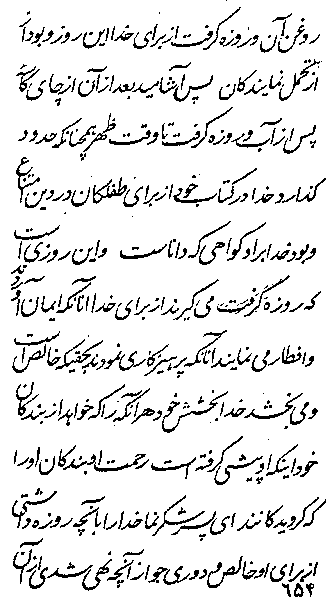 روغن آن و روزه گرفت از برای خدا این روز و بود آن
از تحمل نمایندکان پس آشامید بعد از آن از چای
پس از آب و روزه گرفت تا وقت ظهر همچنانکه حدود
گذارد خدا در کتاب خود از برای طفلکان در دین امتناع
و بود خدا بر او گواهی که داناست و این روزی است
که روزه گرفت می گیرند از برای خدا آنانکه ایمان آوردند
و افطار می نمایند آنانکه پرهیزکاری نمودند بحقیکه خالص است
و می بخشد خدا بخشش خود هر آنکه را که خواهد از بندکان
خود اینکه او پیشی گرفته است رحمت او بندکان او را
که گرویدکانند ای پسر شکر نما خدا را بآنچه روزه داشتی
از برای او خالص و دوری جو از آنچه نهی شدی از آن
۶۵۴